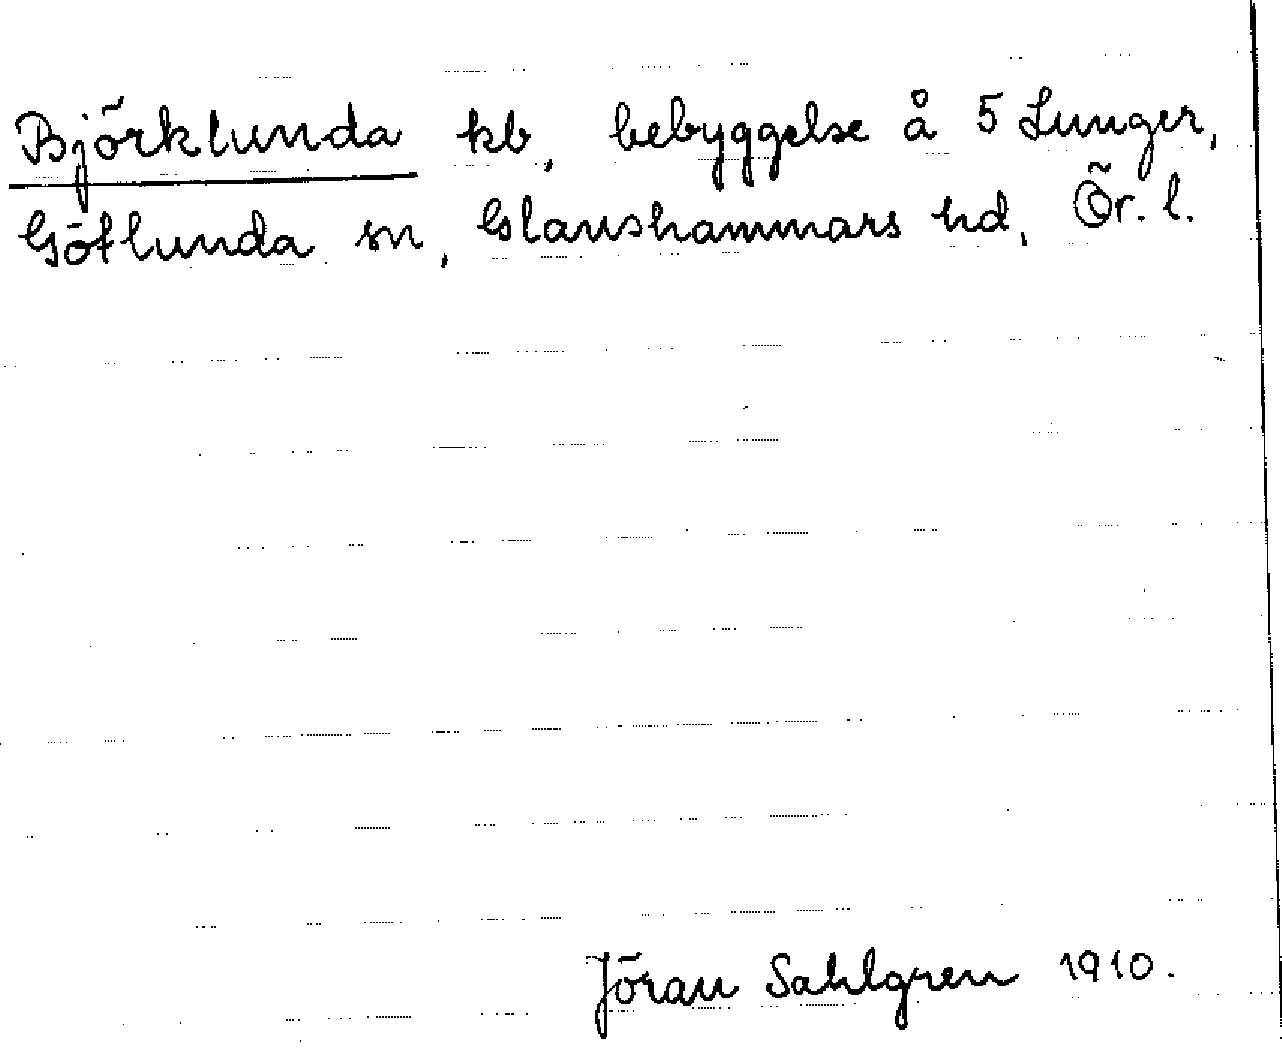 Björklunda kb, bebyggelse å 5 Lunger,
Götlunda sn, Glanshammars hd, Ör. l.
Jöran Sahlgren 1910.